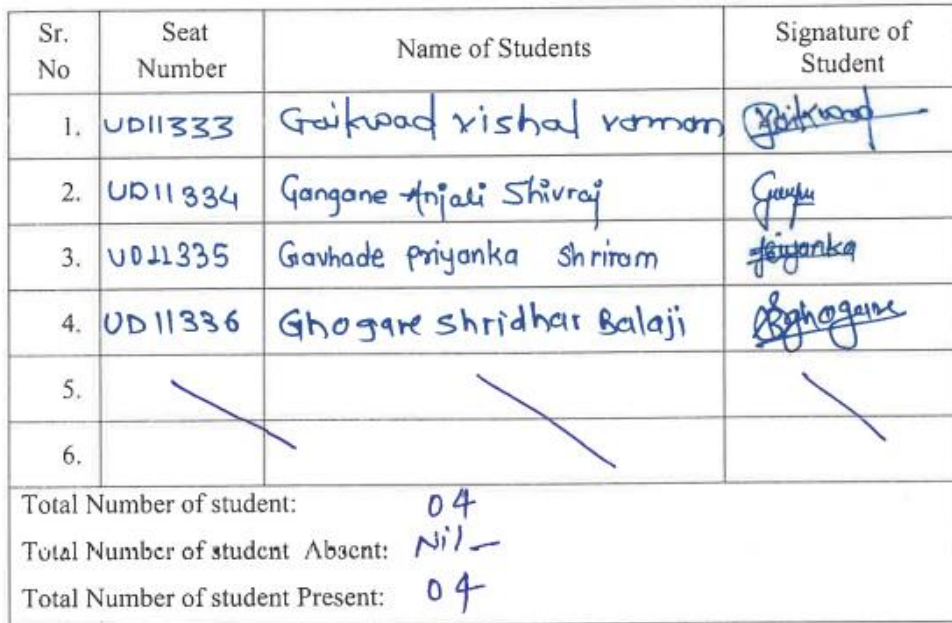 Sr. No Seat Number Name of Students Signature of Student
1. UD11333 Gaikwad vishal vaman Gaikwad
2. UD11334 Gangane Anjali Shivraj
3. UD11335 Gavhade priyanka shriram priyanka
4. UD11336 Ghogare shridhar Balaji SBghogare
5.
6.
Total Number of student: 04
Total Number of student Absent: Nil
Total Number of student Present: 04